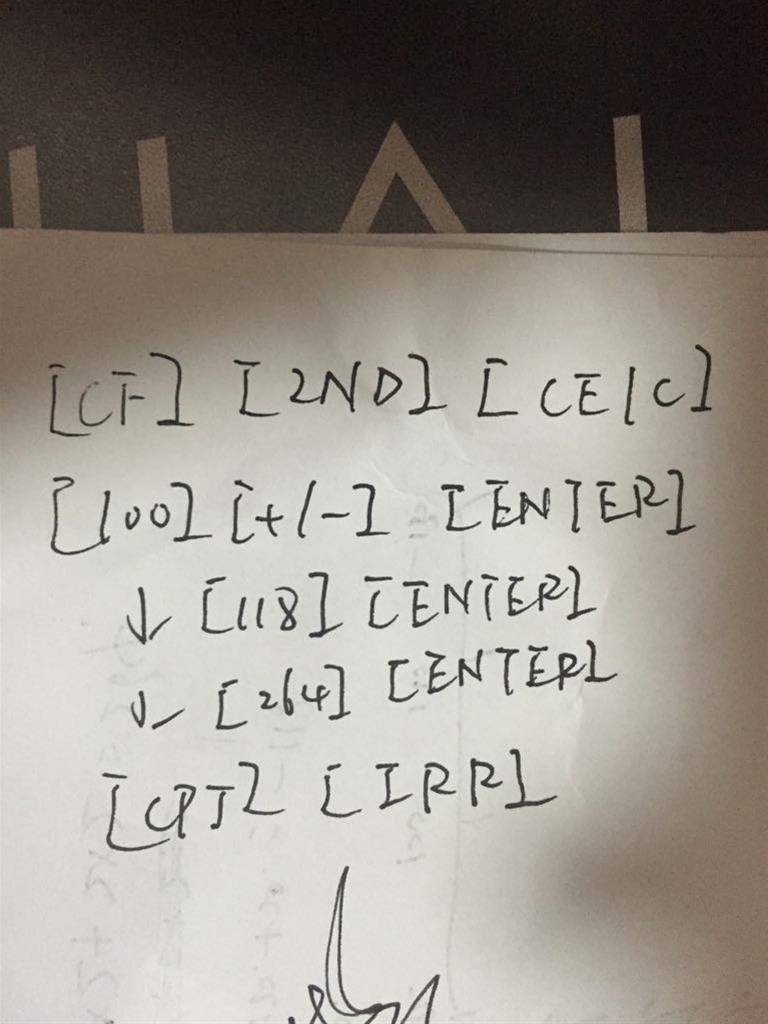 [CF] [2ND] [CE/C]
[100] [+/-] [ENTER]
↓ [118] [ENTER]
↓ [264] [ENTER]
[CPT] [IRR]